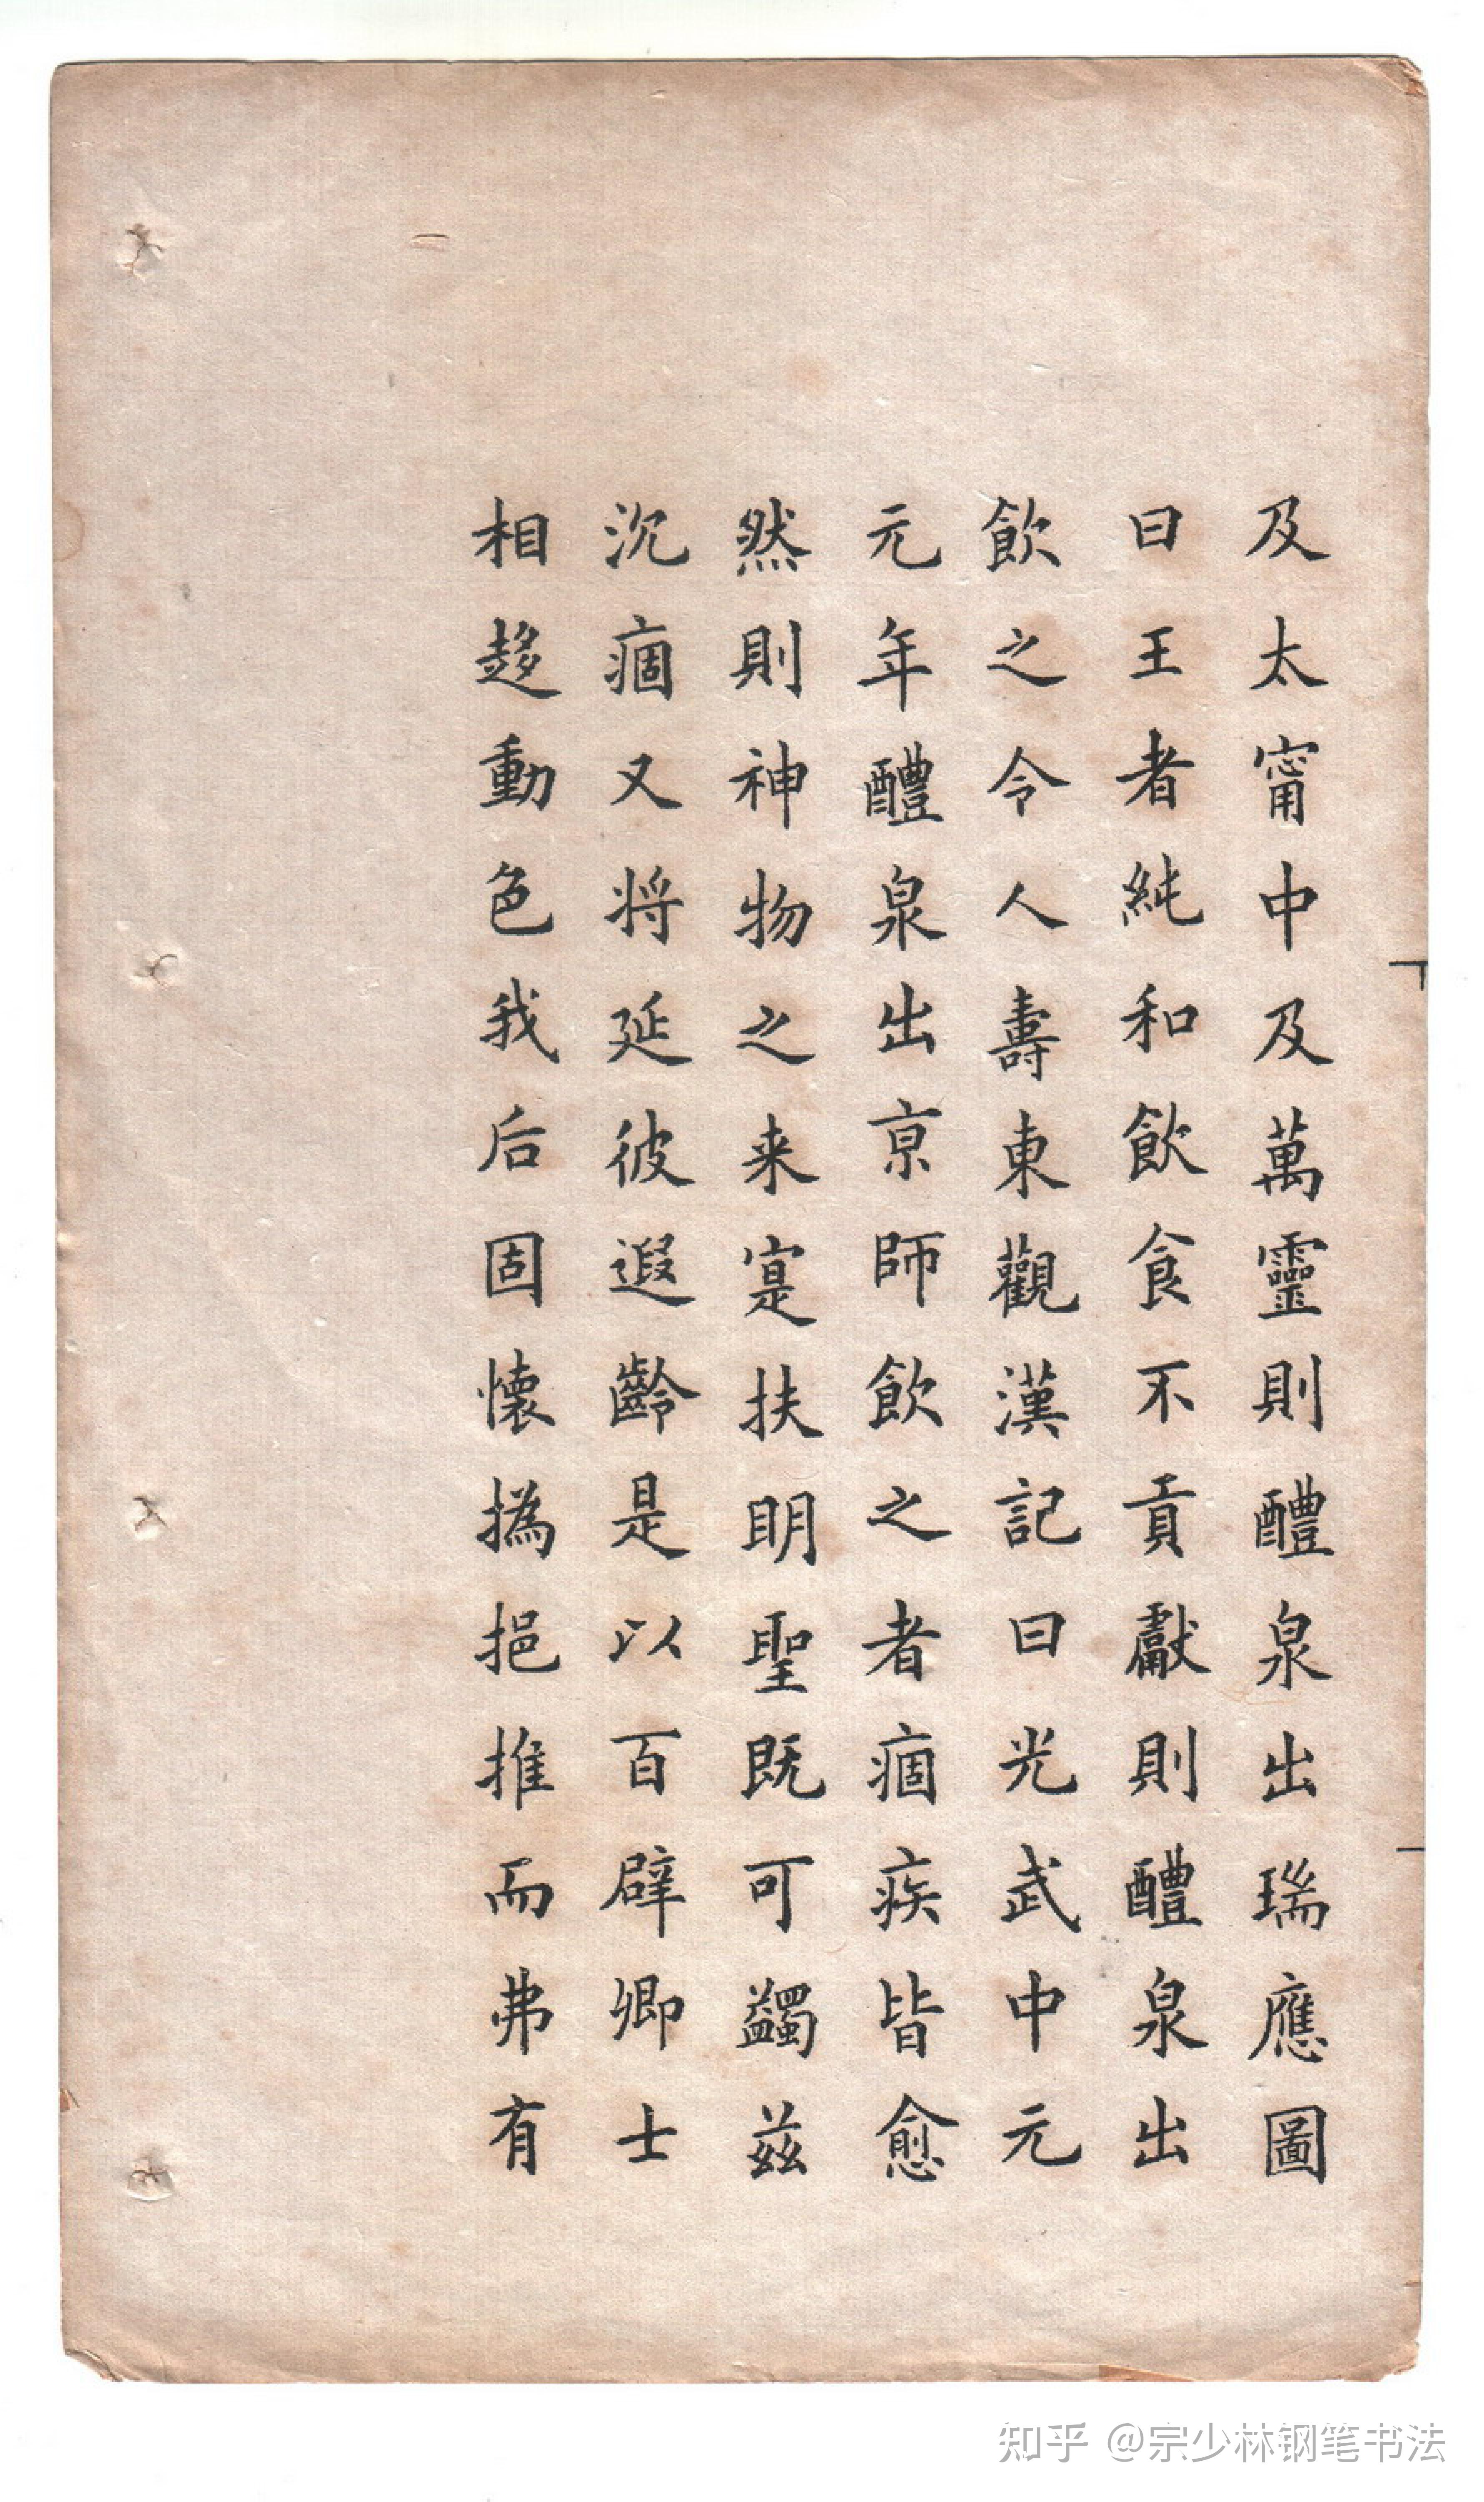 及太甯中及萬靈則醴泉出瑞應圖
曰王者純和飲食不貢獻則醴泉出
飲之令人壽東觀漢記曰光武中元
元年醴泉出京師飲之者痼疾皆愈
然則神物之来寔扶明聖既可蠲兹
沉痼又将延彼遐齡是以百辟卿士
相趍動色我后固懷撝挹推而弗有
知乎 @宗少林钢笔书法